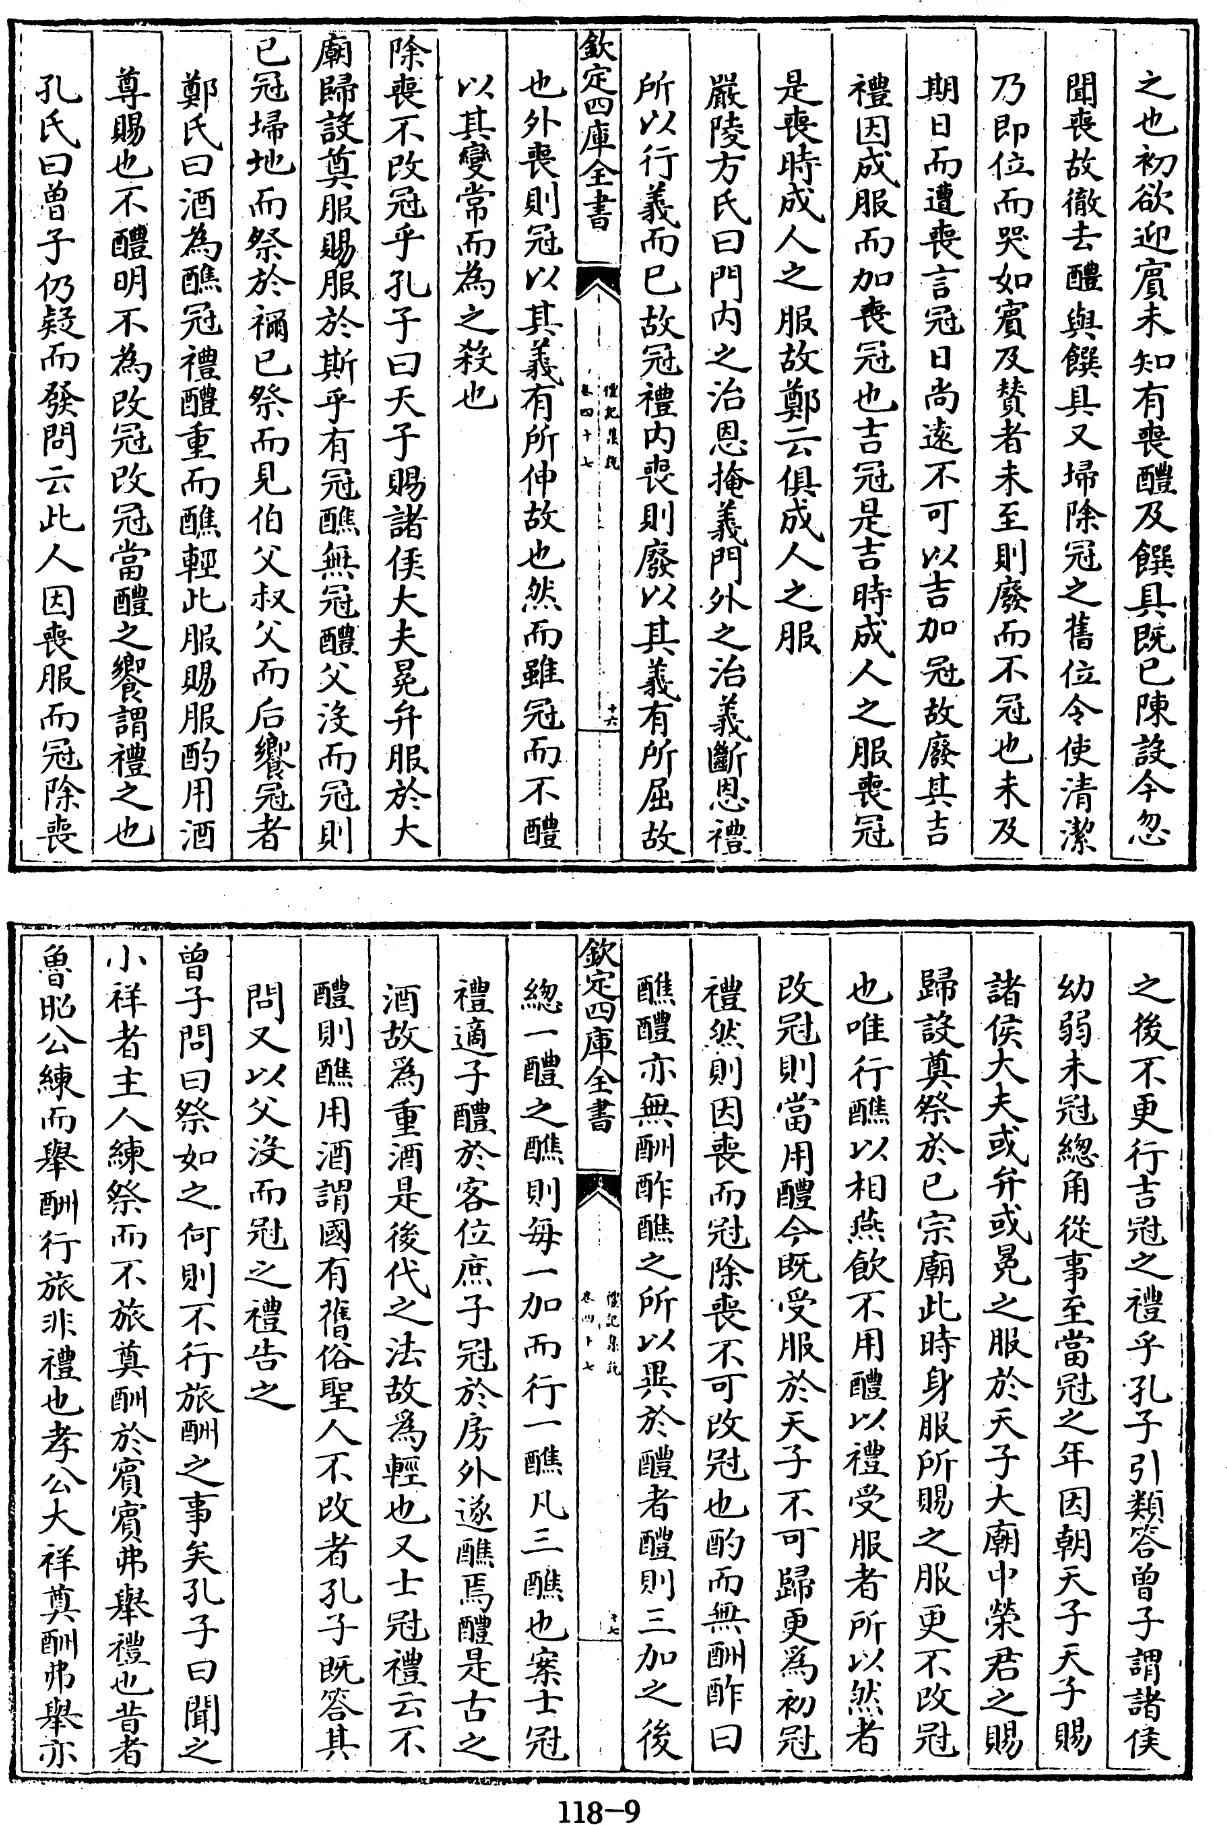 之也初欲迎賓未知有喪醴及饌具既已陳設今忽
聞喪故徹去醴與饌具又埽除冠之舊位令使清潔
乃即位而哭如賓及賛者未至則廢而不冠也未及
期日而遭喪言冠日尚遠不可以吉加冠故廢其吉
禮因成服而加喪冠也吉冠是吉時成人之服喪冠
是喪時成人之服故鄭云俱成人之服
嚴陵方氏曰門内之治恩掩義門外之治義斷恩禮
所以行義而已故冠禮内喪則廢以其義有所屈故
欽定四庫全書
禮記集說
卷四十七
十六
也外喪則冠以其義有所伸故也然而雖冠而不醴
以其變常而為之殺也
除喪不改冠乎孔子曰天子賜諸侯大夫冕弁服於大
廟歸設奠服賜服於斯乎有冠醮無冠醴父沒而冠則
已冠埽地而祭於禰已祭而見伯父叔父而后饗冠者
鄭氏曰酒為醮冠禮醴重而醮輕此服賜服酌用酒
尊賜也不醴明不為改冠改冠當醴之饗謂禮之也
孔氏曰曽子仍疑而發問云此人因喪服而冠除喪
之後不更行吉冠之禮乎孔子引類答曽子謂諸侯
幼弱未冠總角從事至當冠之年因朝天子天子賜
諸侯大夫或弁或冕之服於天子大廟中榮君之賜
歸設奠祭於已宗廟此時身服所賜之服更不改冠
也唯行醮以相燕飲不用醴以禮受服者所以然者
改冠則當用醴今既受服於天子不可歸更爲初冠
禮然則因喪而冠除喪不可改冠也酌而無酬酢曰
醮醴亦無酬酢醮之所以異於醴者醴則三加之後
欽定四庫全書
禮記集說
卷四十七
十七
總一醴之醮則毎一加而行一醮凡三醮也案士冠
禮適子醴於客位庶子冠於房外遂醮焉醴是古之
酒故爲重酒是後代之法故爲輕也又士冠禮云不
醴則醮用酒謂國有舊俗聖人不改者孔子既答其
問又以父沒而冠之禮告之
曽子問曰祭如之何則不行旅酬之事矣孔子曰聞之
小祥者主人練祭而不旅奠酬於賓賓弗舉禮也昔者
魯昭公練而舉酬行旅非禮也孝公大祥奠酬弗舉亦
118-9